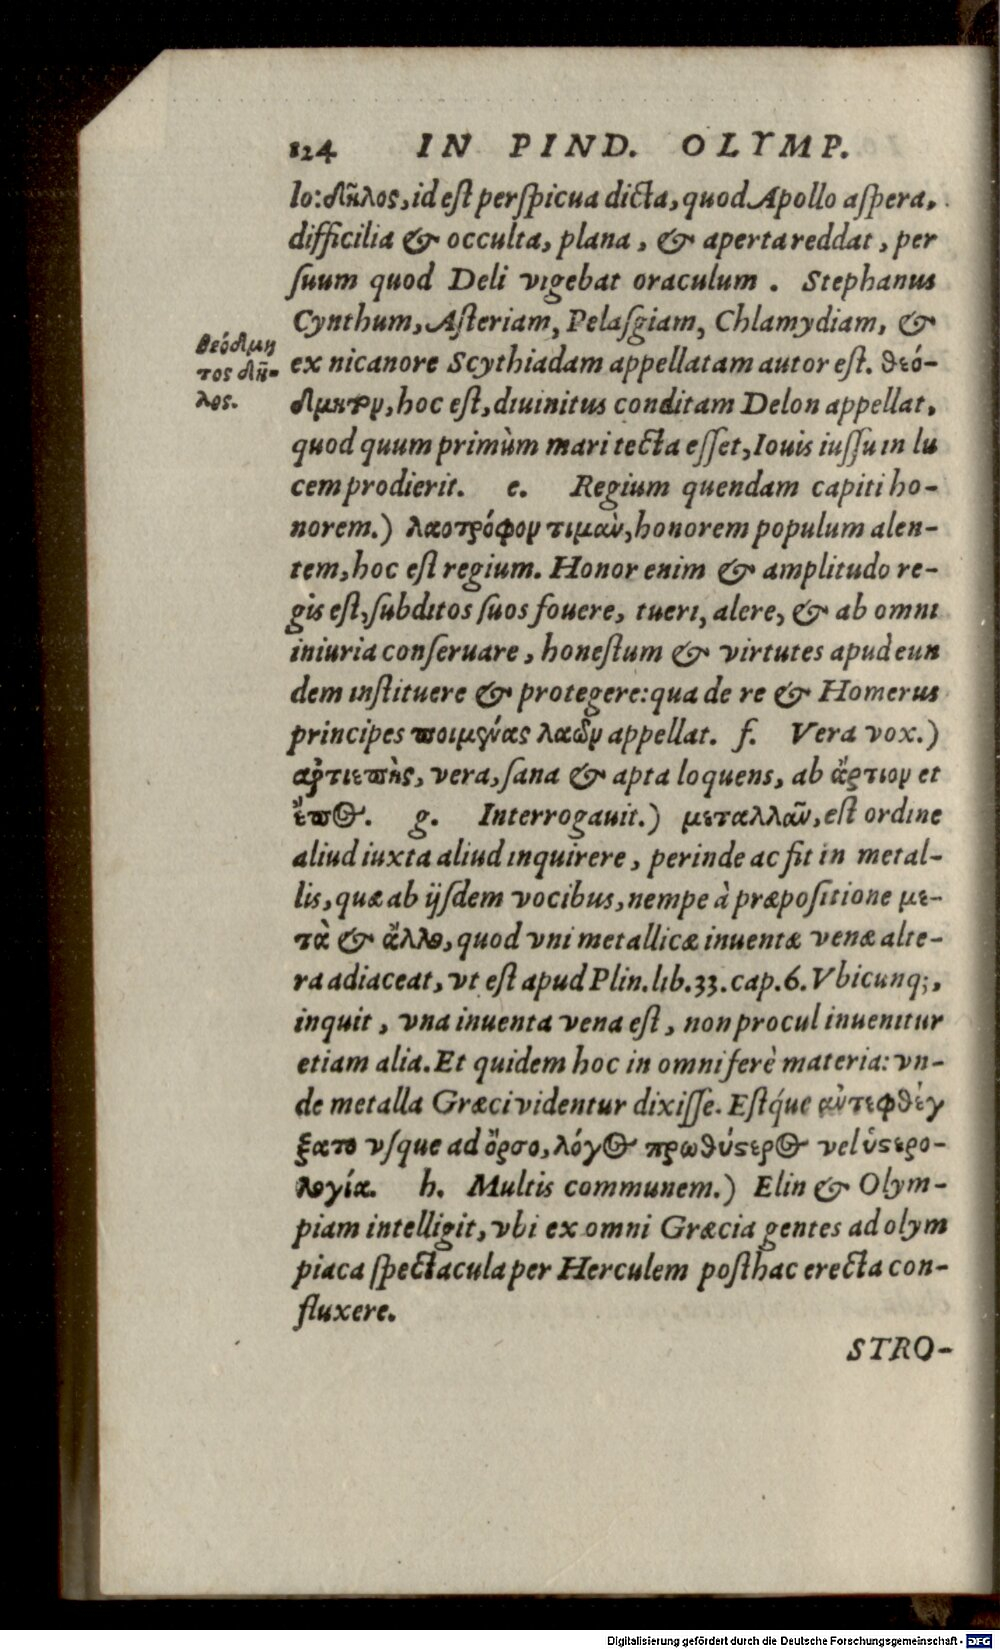 124 IN PIND. OLYMP.
lo: δῆλος, id eſt perſpicua dicta, quod Apollo aſpera,
difficilia & occulta, plana, & aperta reddat, per
ſuum quod Deli vigebat oraculum. Stephanus
Cynthum, Aſteriam, Pelaſgiam, Chlamydiam, &
θεόδμη
ex nicanore Scythiadam appellatam autor eſt. θεό-
τος δῆ-
δμητον, hoc eſt, diuinitus conditam Delon appellat,
λος.
quod quum primùm mari tecta eſſet, Iouis iuſſu in lu
cem prodierit. e. Regium quendam capiti ho-
norem.) λαοτρόφον τιμαὺ, honorem populum alen-
tem, hoc eſt regium. Honor enim & amplitudo re-
gis eſt, ſubditos ſuos fouere, tueri, alere, & ab omni
iniuria conſeruare, honeſtum & virtutes apud eun
dem inſtituere & protegere: qua de re & Homerus
principes ποιμένας λαῶν appellat. f. Vera vox.)
ἀρτιεπὴς, vera, ſana & apta loquens, ab ἄρτιον et
ἔπος. g. Interrogauit.) μεταλλᾶν, eſt ordine
aliud iuxta aliud inquirere, perinde ac fit in metal-
lis, quæ ab ijſdem vocibus, nempe à præpoſitione με-
τὰ & ἄλλο, quod vni metallicæ inuentæ venæ alte-
ra adiaceat, vt eſt apud Plin. lib. 33. cap. 6. Vbicunq;,
inquit, vna inuenta vena eſt, non procul inuenitur
etiam alia. Et quidem hoc in omni ferè materia: vn-
de metalla Græci videntur dixiſſe. Eſtq́ue ἀντεφθέγ
ξατο vſque ad ὄρσο, λόγος πρωθύστερος vel ὑστερο-
λογία. h. Multis communem.) Elin & Olym-
piam intelligit, vbi ex omni Græcia gentes ad olym
piaca ſpectacula per Herculem poſthac erecta con-
fluxere.
STRO-
Digitalisierung gefördert durch die Deutsche Forschungsgemeinschaft - DFG